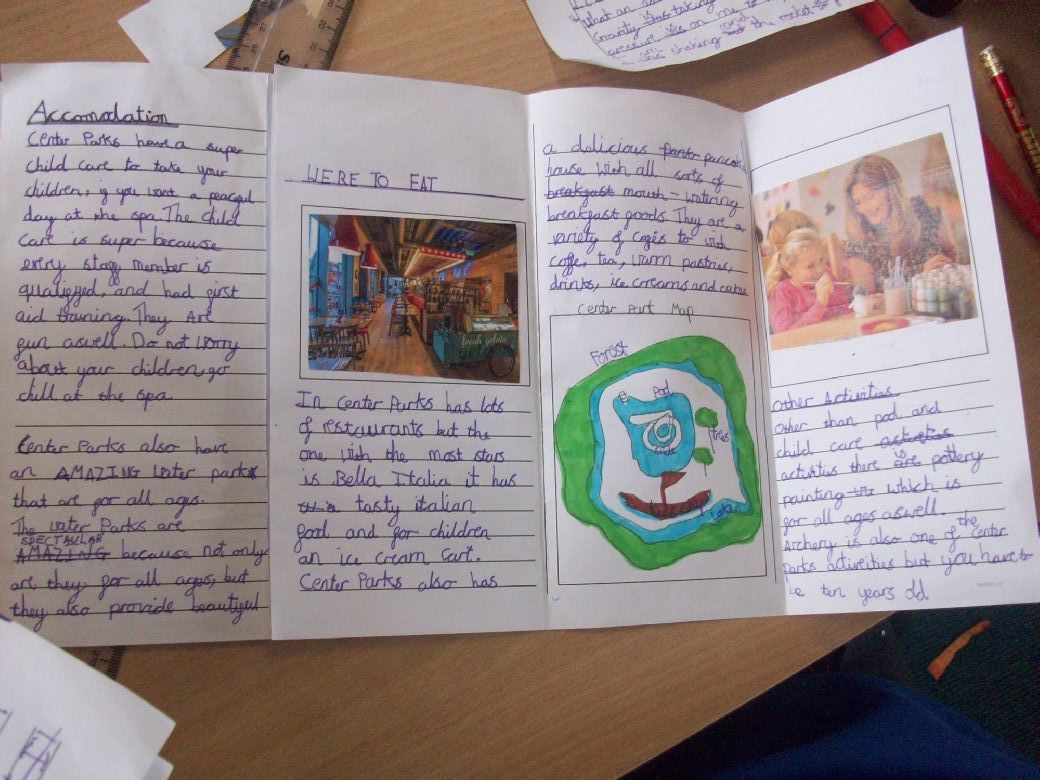 What an as
Gravity was taking
pressure is on me to
shaking and the rocket to
Accomodation
Center Parks have a super
child care to take your
children, if you want a peacful
day at the spa. The child
care is super because
every staff member is
qualiffyed, and had first
aid training. They Are
fun aswell. Do not worry
about your children go
chill at the spa
Center Parks also have
an AMAZING water park
that are for all ages.
The water Parks are
SPECTAULAR
AMAZING because not only
are they for all ages, but
they also provide beautiful
WERE TO EAT
fresh gelato
In Center Parks has lots
of restaurants but the
one with the most stars
is Bella Italia it has
tasty italian
food and for children
an ice cream cart.
Center Parks also has
a dalicious pancake
house with all sorts of
breakfast mouth-watering
breakfast foods. They are a
variety of cafés to with
coffe, tea, warm pastries,
drinks, ice creams and cakes
Center Park Map
Forest
Pool
trees
Lake
Other Activities
Other than pool and
child care activites
activitis there are is pottery
painting which is
for all ages aswell.
Archery is also one of the Center
parts activeities but you have to
be ten years old